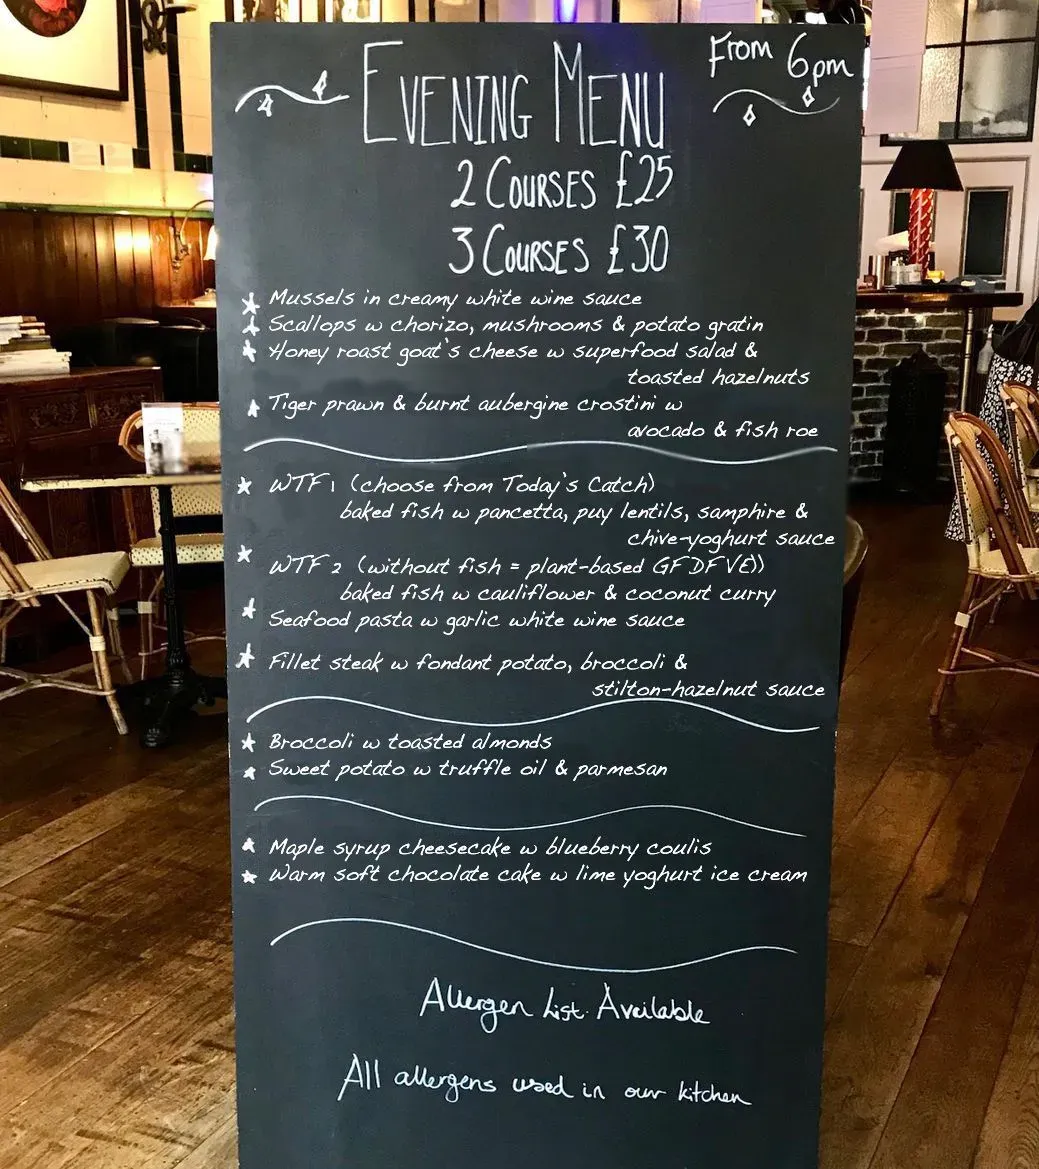 EVENING MENU
From 6pm
2 COURSES £25
3 COURSES £30
Mussels in creamy white wine sauce
Scallops w chorizo, mushrooms & potato gratin
Honey roast goat's cheese w superfood salad &
toasted hazelnuts
Tiger prawn & burnt aubergine crostini w
avocado & fish roe
WTF 1 (choose from Today's Catch)
baked fish w pancetta, puy lentils, samphire &
chive-yoghurt sauce
WTF 2 (without fish = plant-based GFDFVE))
baked fish w cauliflower & coconut curry
Seafood pasta w garlic white wine sauce
Fillet steak w fondant potato, broccoli &
stilton-hazelnut sauce
Broccoli w toasted almonds
Sweet potato w truffle oil & parmesan
Maple syrup cheesecake w blueberry coulis
Warm soft chocolate cake w lime yoghurt ice cream
Allergen List Available
All allergens used in our kitchen